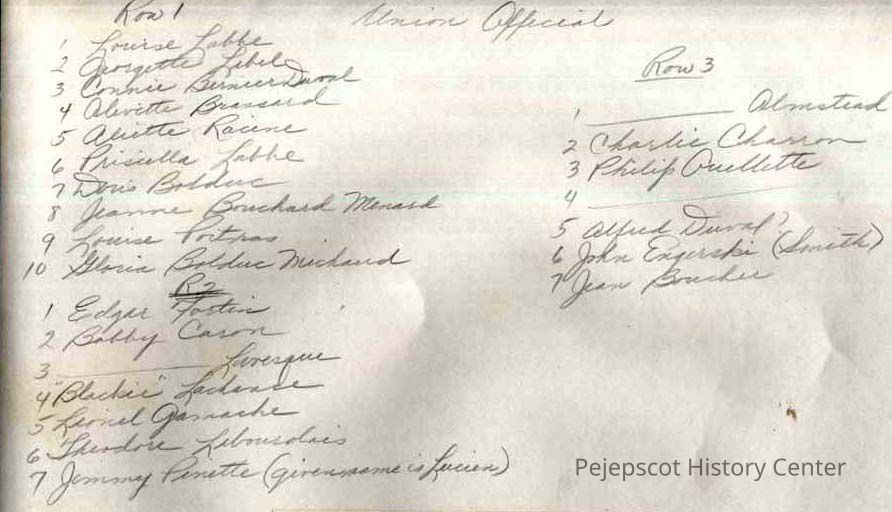 Union Official
Row 1
1 Louise Labbe
2 Georgette Lebel
3 Connie Bernier Duval
4 Alevette Brassard
5 Aliette Racine
6 Priscilla Labbe
7 Doris Bolduc
8 Jeanne Bouchard Menard
9 Louise Poitras
10 Gloria Bolduc Michaud
R2
1 Edgar Fortin
2 Bobby Caron
3 ______ Levesque
4 "Blackie" Lachanse
5 Lionel Gamache
6 Theodore Lebourdais
7 Jimmy Pinette (given name is Lucien)
Row 3
1 ______ Almstead
2 Charlie Charron
3 Philip Ouellette
4 ______
5 Alfred Duval?
6 John Engerski (Smith)
7 Jean Boucher
Pejepscot History Center